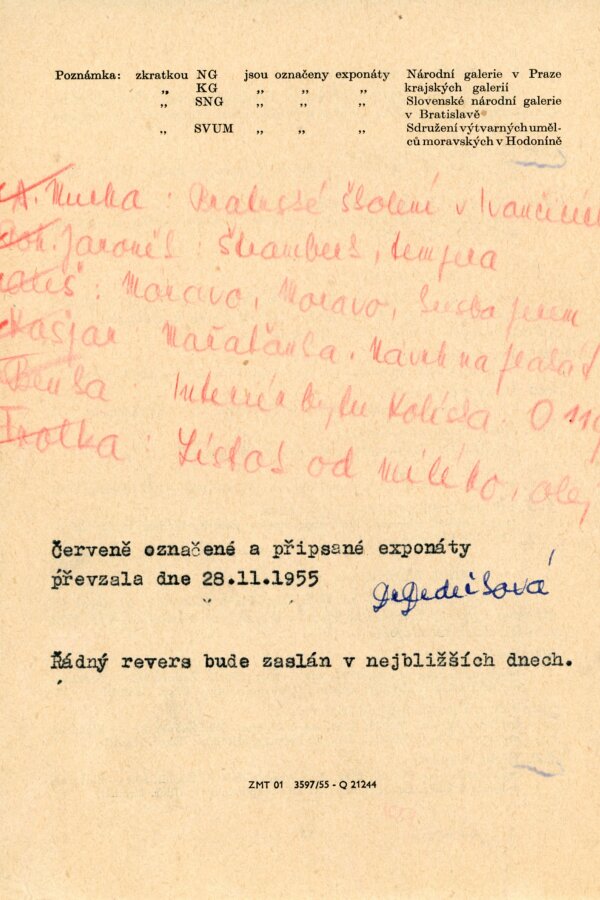 Poznámka: zkratkou NG jsou označeny exponáty Národní galerie v Praze
„ KG „ „ „ krajských galerií
„ SNG „ „ „ Slovenské národní galerie
v Bratislavě
„ SVUM „ „ „ Sdružení výtvarných uměl-
ců moravských v Hodoníně
A. Mucha : školení v Ivančicích
Joh. Jaroněk : Štramberk, tempera
Moravo, Moravo,
Kašpar Mařatčanka, Návrh na
Benka Interiér bytu
Frolka : Lístok od milého, olej
červeně označené a připsané exponáty
převzala dne 28.11.1955
Řádný revers bude zaslán v nejbližších dnech.
ZMT 01 3597/55 - Q 21244